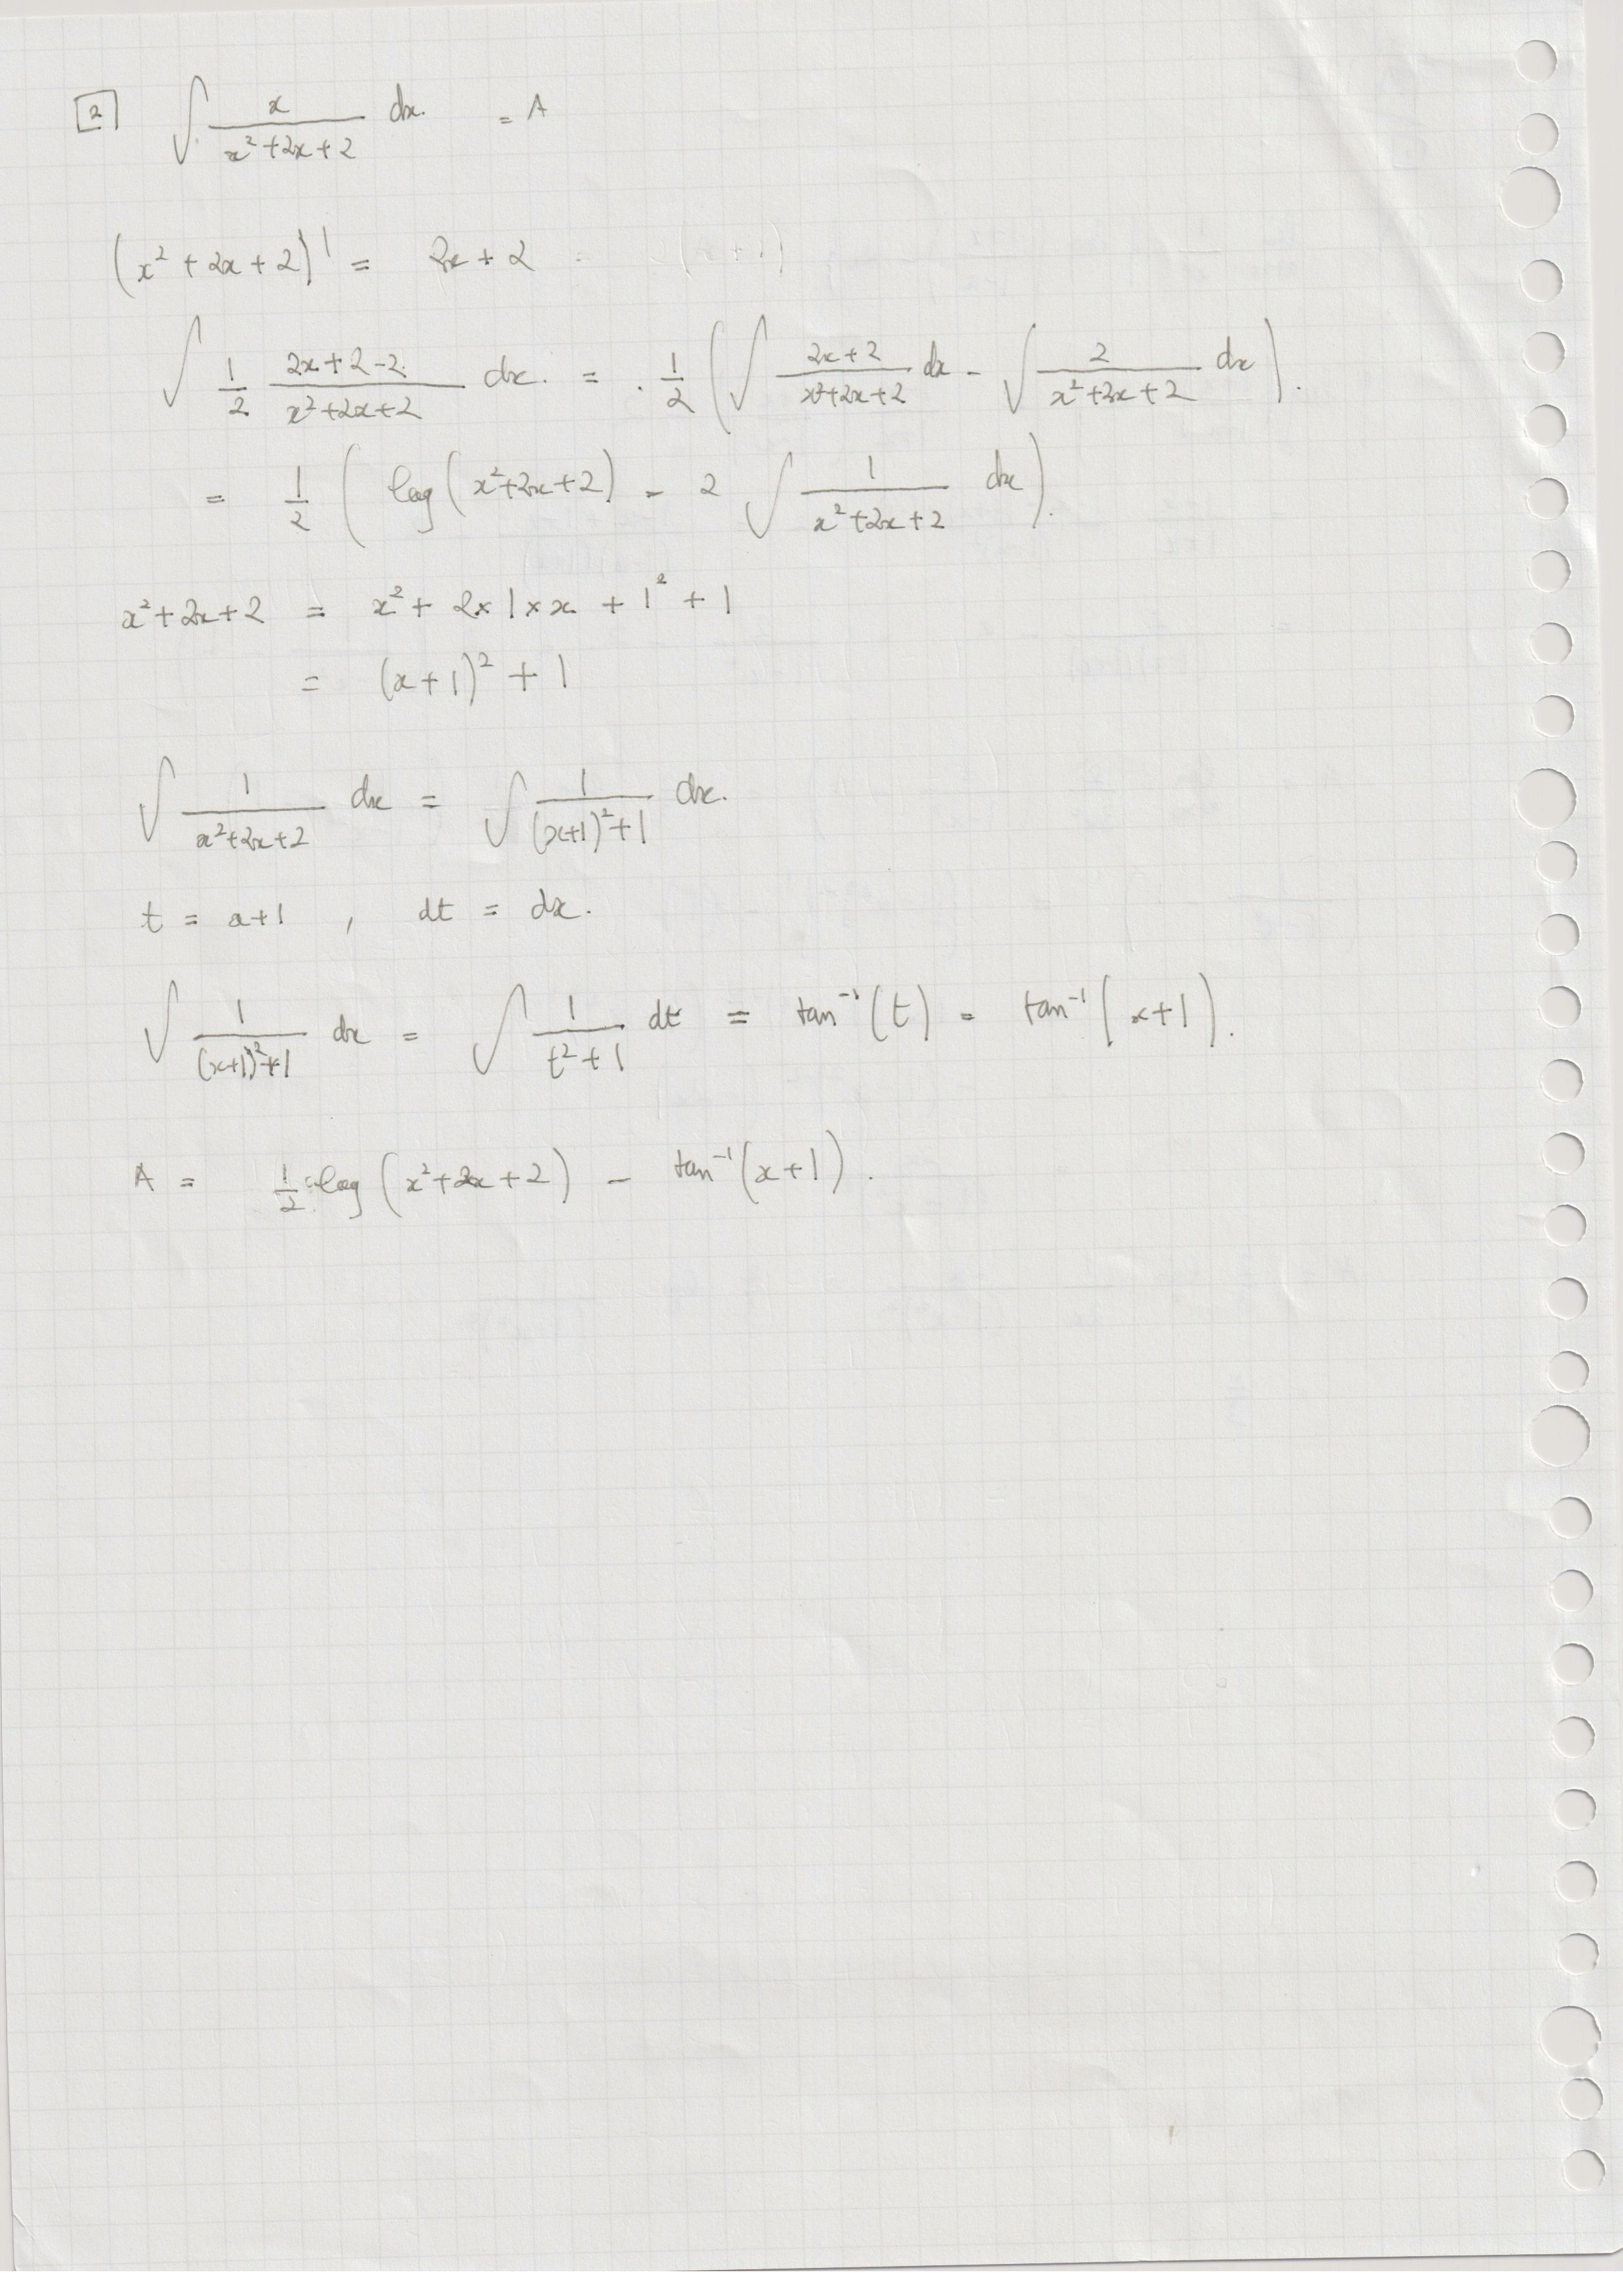 [2] ∫ x/(x²+2x+2) dx. = A
(x²+2x+2)' = 2x+2
∫ 1/2 (2x+2-2)/(x²+2x+2) dx. = 1/2 ( ∫ (2x+2)/(x²+2x+2) dx - ∫ 2/(x²+2x+2) dx ).
= 1/2 ( log(x²+2x+2) - 2 ∫ 1/(x²+2x+2) dx ).
x²+2x+2 = x² + 2×1×x + 1² + 1
= (x+1)² + 1
∫ 1/(x²+2x+2) dx = ∫ 1/((x+1)²+1) dx.
t = x+1 , dt = dx.
∫ 1/((x+1)²+1) dx = ∫ 1/(t²+1) dt = tan⁻¹(t) = tan⁻¹(x+1).
A = 1/2 log(x²+2x+2) - tan⁻¹(x+1).